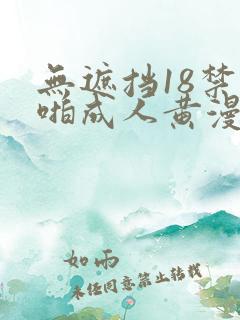 無遮挡18禁
啪成人黄漫
如雨
未经同意禁止转载